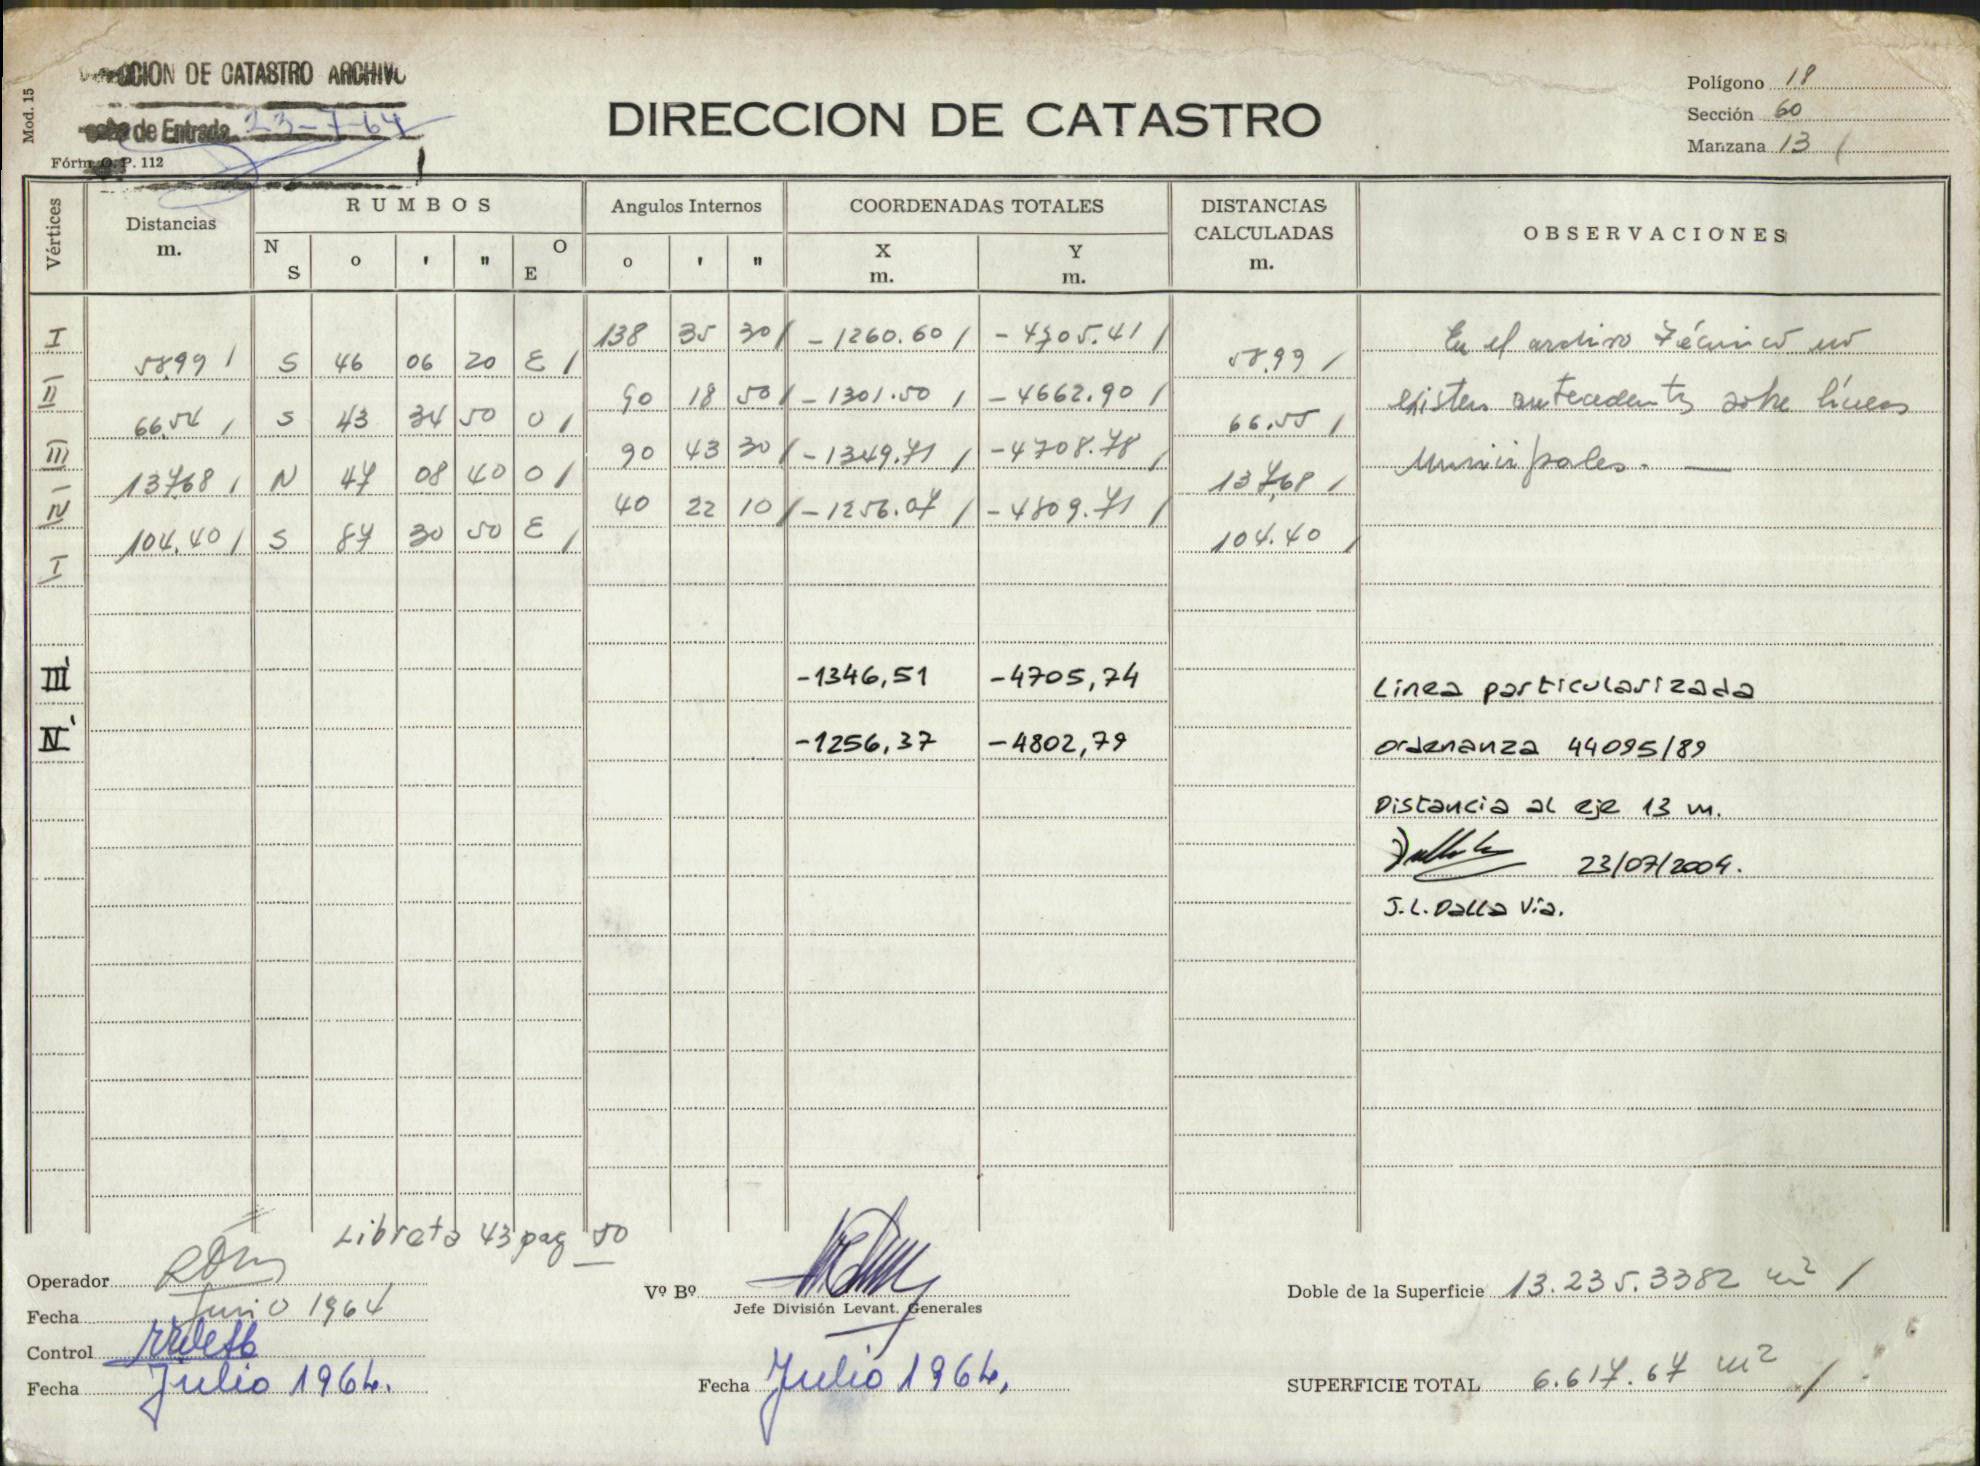 CCION DE CATASTRO ARCHIVO
de Entrada 23-7-64
Mod. 15
Fórm. O. P. 112
DIRECCION DE CATASTRO
Polígono 18
Sección 60
Manzana 13 /
Vértices
Distancias
m.
RUMBOS
N
S
o
'
"
O
E
Angulos Internos
o
'
"
COORDENADAS TOTALES
X
m.
Y
m.
DISTANCIAS
CALCULADAS
m.
OBSERVACIONES
I 138 35 30 / -1260.60 / -4705.41 /
58,99 / S 46 06 20 E / 58,99 /
II 90 18 50 / -1301.50 / -4662.90 /
66,54 / S 43 34 50 O / 66.55 /
III 90 43 30 / -1349.71 / -4708.78 /
137,68 / N 47 08 40 O / 137,68 /
IV 40 22 10 / -1256.07 / -4809.71 /
104.40 / S 87 30 50 E / 104.40 /
I
En el archivo Técnico no
existen antecedentes sobre líneas
Municipales. —
III' -1346,51 -4705,74
IV' -1256,37 -4802,79
Linea particularizada
ordenanza 44095/89
Distancia al eje 13 m.
23/07/2004.
J.L. Dalla Via.
Libreta 43 pag 50
Operador
Fecha Junio 1964
Control
Fecha Julio 1964.
Vº Bº
Jefe División Levant. Generales
Fecha Julio 1964,
Doble de la Superficie 13.235.3382 m² /
SUPERFICIE TOTAL 6.617.67 m² /